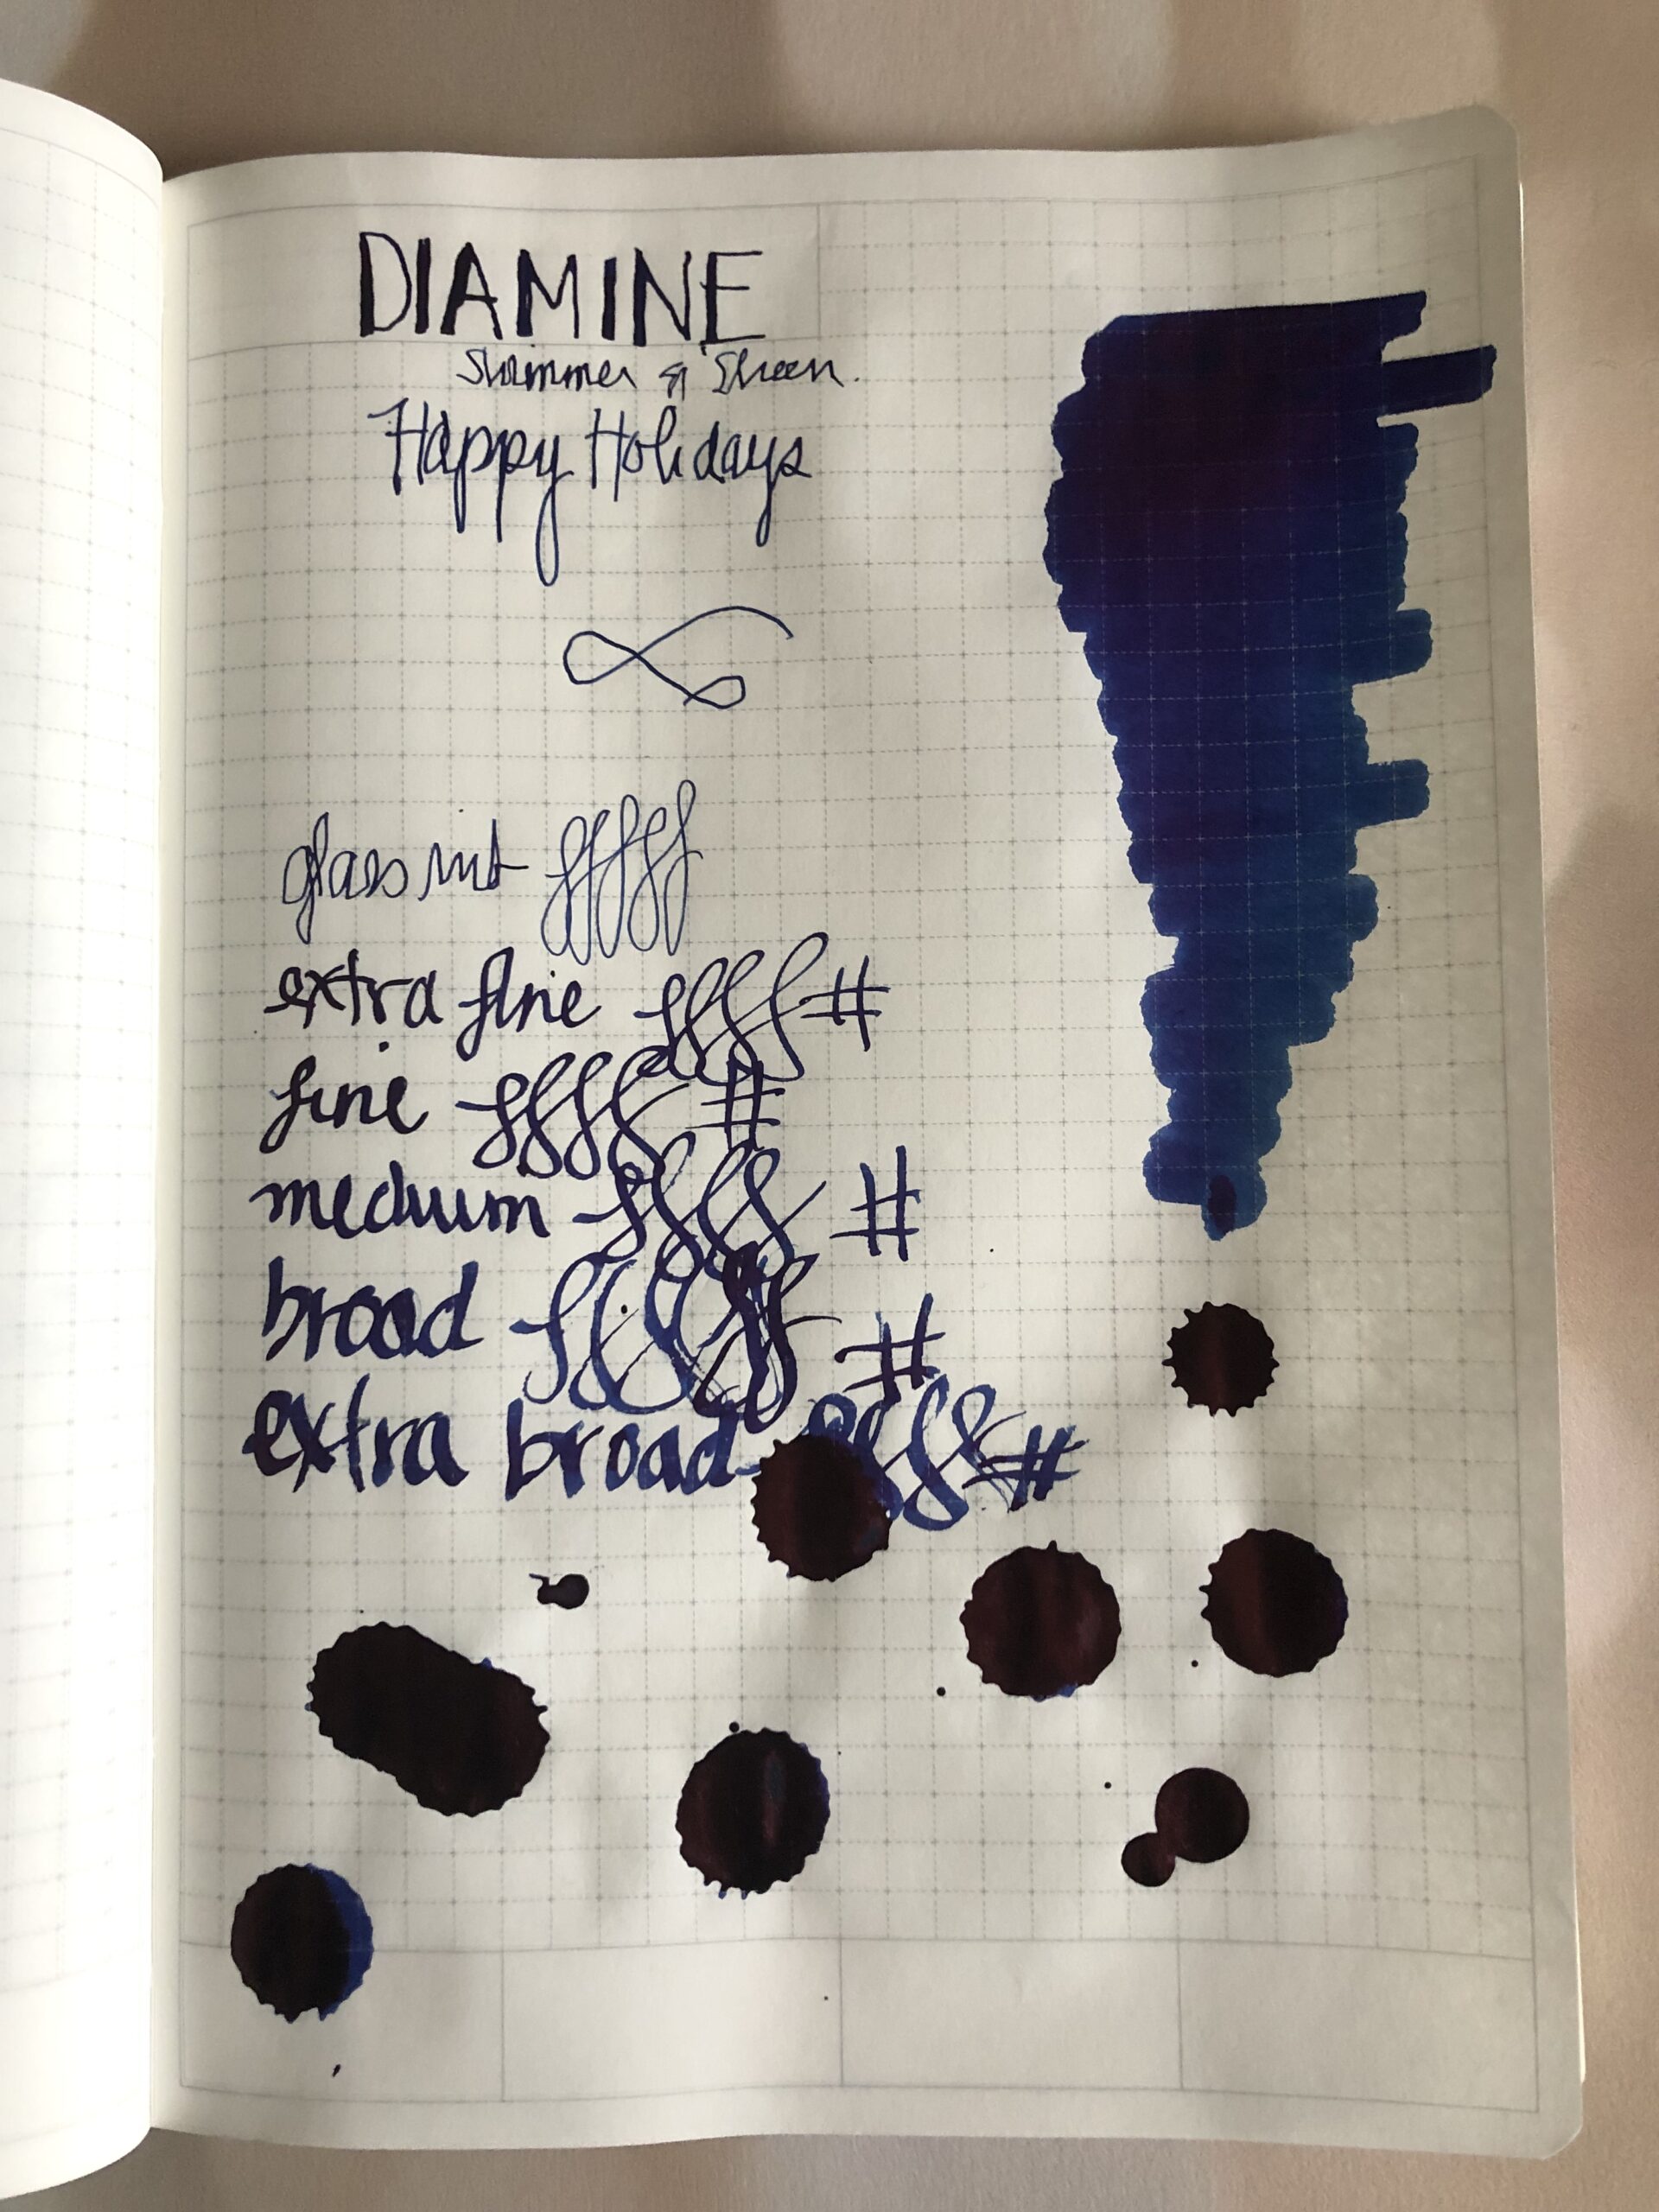 DIAMINE
Shimmer & Sheen.
Happy Holidays
glass nib ffff
extra fine ffff #
fine ffff #
medium ffff #
broad ffff #
extra broad ffff #